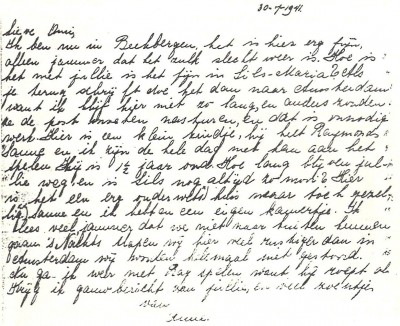 30-7-1941
Lieve Omi,
Ik ben nu in Beekbergen, het is hier erg fijn,
alleen jammer dat het zulk slecht weer is. Hoe is
het met jullie is het fijn in Sils-Maria? Als
je terug schrijft doe het dan naar Amsterdam
want ik blijf hier niet zo lang, en anders
ze de post nasturen, en dat is onnodig
werk. Hier is een klein kindje, hij heet Raymond.
Sanne en ik zijn de hele dag met hem aan het
spelen. Hij is 1½ jaar oud. Hoe lang blijven jul-
lie weg, en is Sils nog altijd zo mooi? Hier
is het een erg huis maar toch gezel-
lig, Sanne en ik hebben een eigen kamertje. Ik
lees veel, jammer dat we niet naar buiten kunnen
gaan. 's Nachts slapen wij hier veel rustiger dan in
Amsterdam wij worden helemaal niet gestoord.
Nu ga ik weer met Ray spelen want hij roept al.
Krijg ik gauw bericht van jullie, en veel zoentjes
van
Anne.